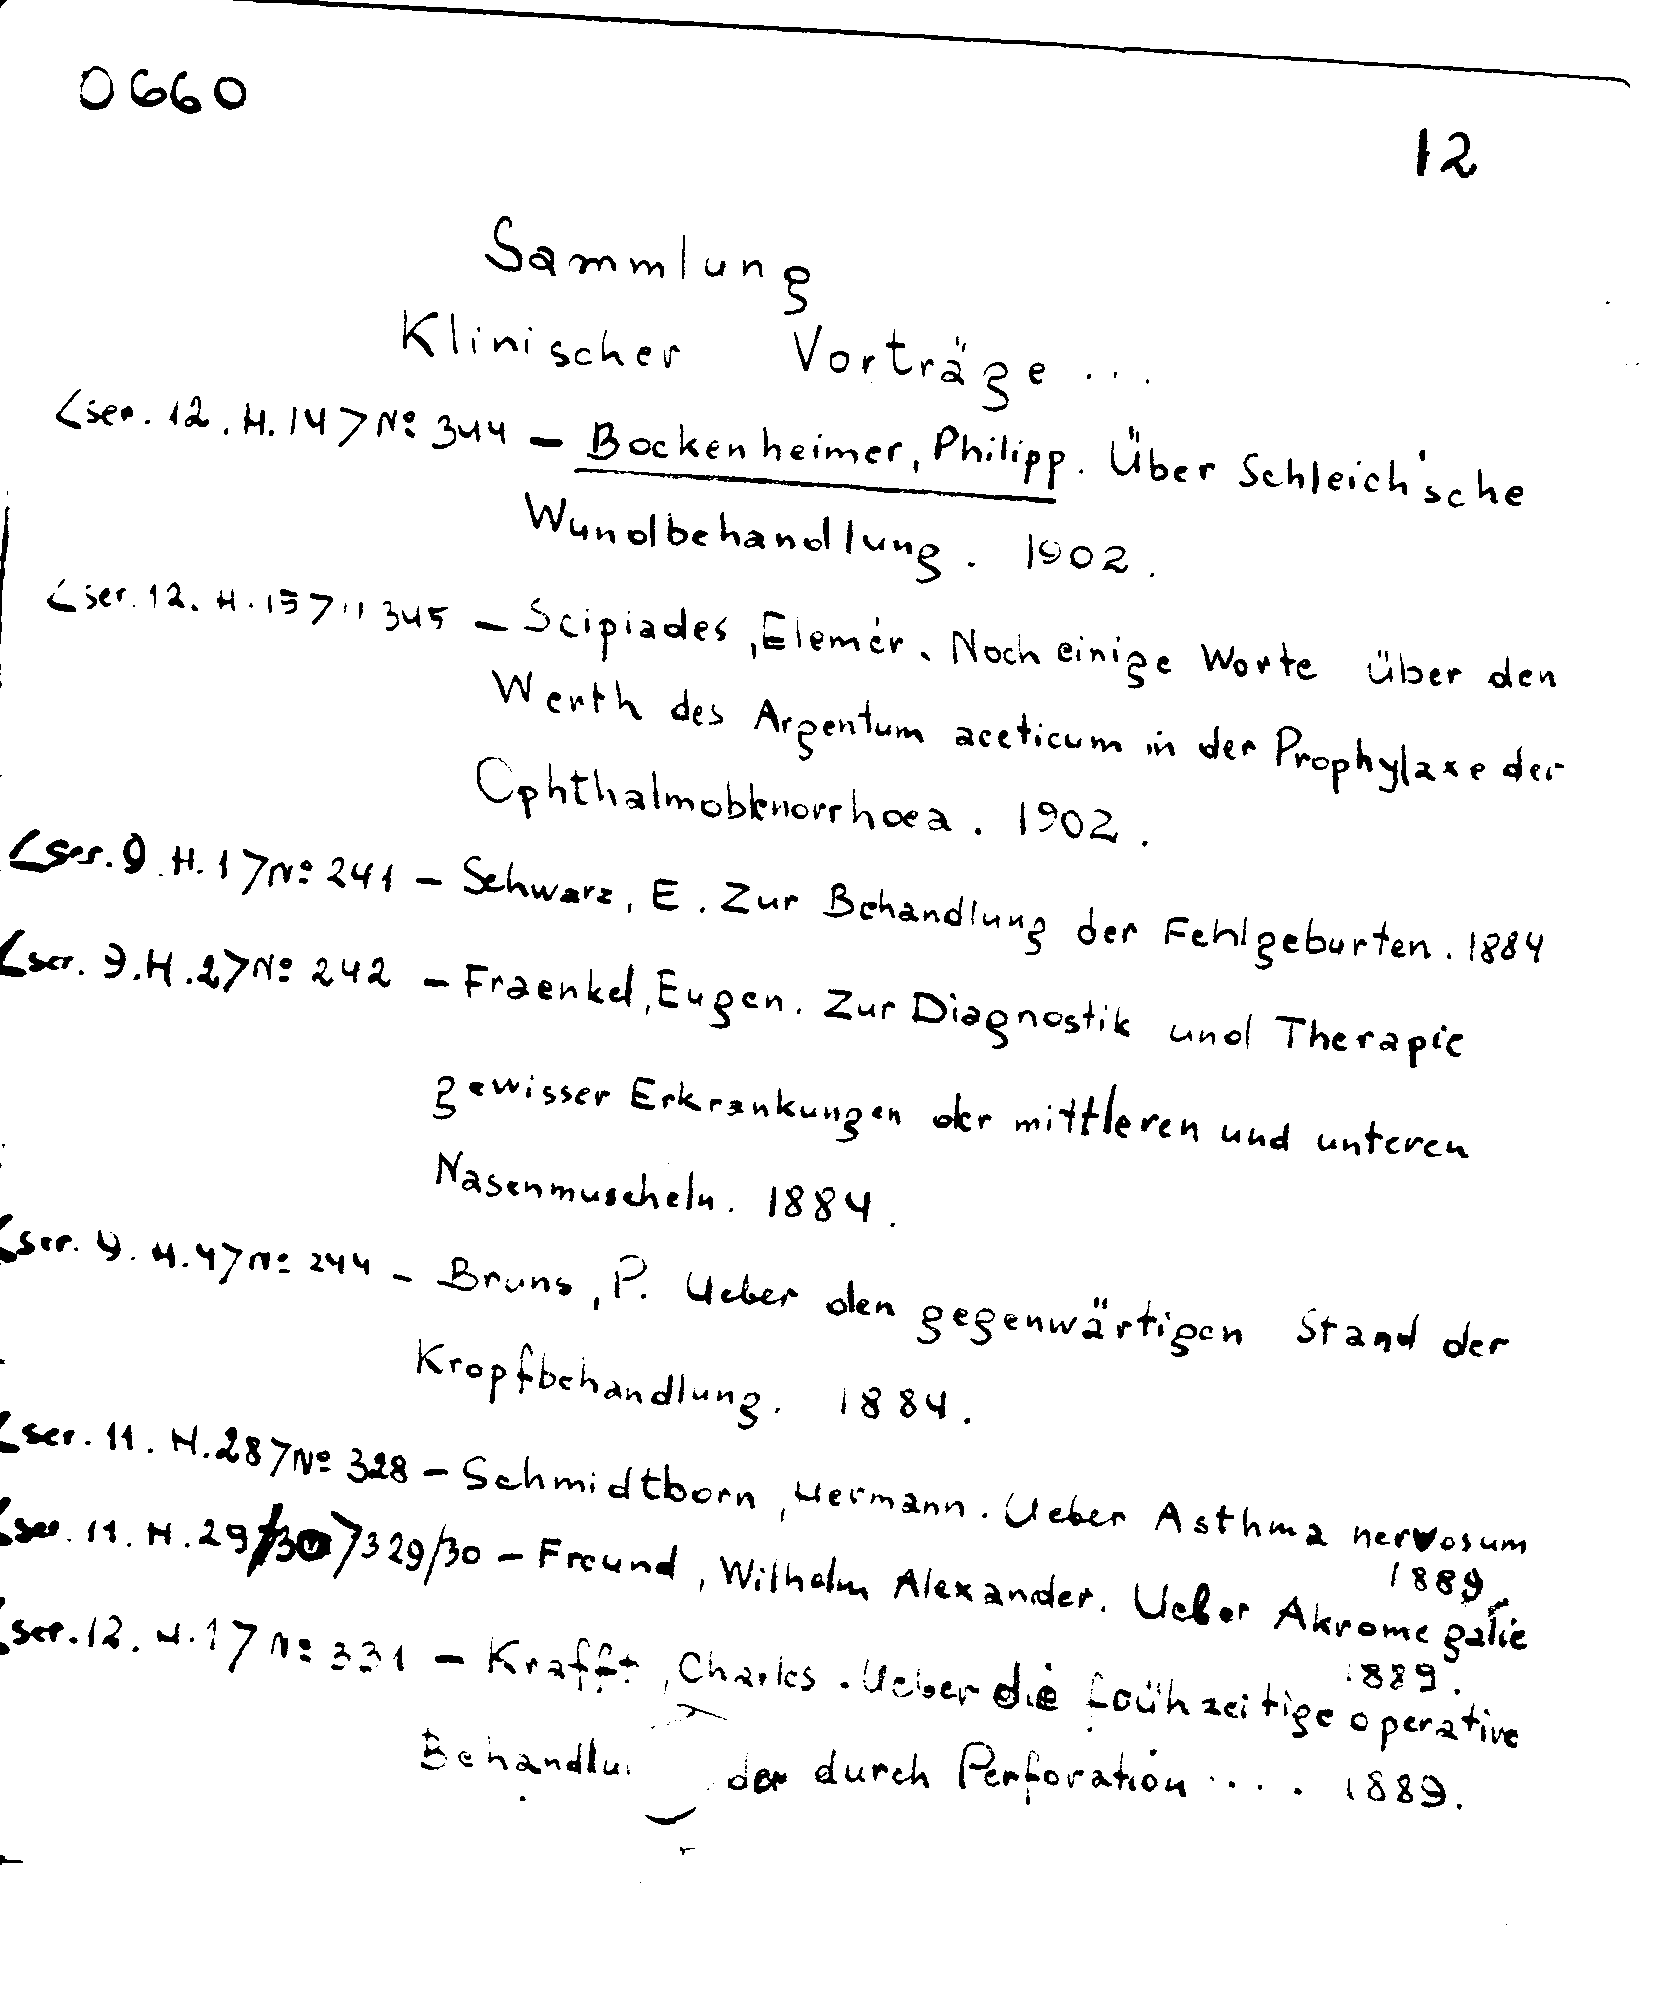 0660
12
Sammlung
Klinischer Vorträge ...
<ser. 12. H. 14> № 344 – Bockenheimer, Philipp. Über Schleich'sche
Wundbehandlung. 1902.
<ser. 12. H. 15> " 345 – Scipiades, Elemér. Noch einige Worte über den
Werth des Argentum aceticum in der Prophylaxe der
Ophthalmoblenorrhoea. 1902.
<ser. 9. H. 1> № 241 – Schwarz, E. Zur Behandlung der Fehlgeburten. 1884
<ser. 9. H. 2> № 242 – Fraenkel, Eugen. Zur Diagnostik und Therapie
gewisser Erkrankungen der mittleren und unteren
Nasenmuscheln. 1884.
<ser. 9. H. 4> № 244 – Bruns, P. Ueber den gegenwärtigen Stand der
Kropfbehandlung. 1884.
<ser. 11. H. 28> № 328 – Schmidtborn, Hermann. Ueber Asthma nervosum
1889.
<ser. 11. H. 29/30> 329/30 – Freund, Wilhelm Alexander. Ueber Akromegalie
1889.
<ser. 12. H. 1> № 331 – Krafft, Charles. Ueber die frühzeitige operative
Behandlu der durch Perforation .... 1889.